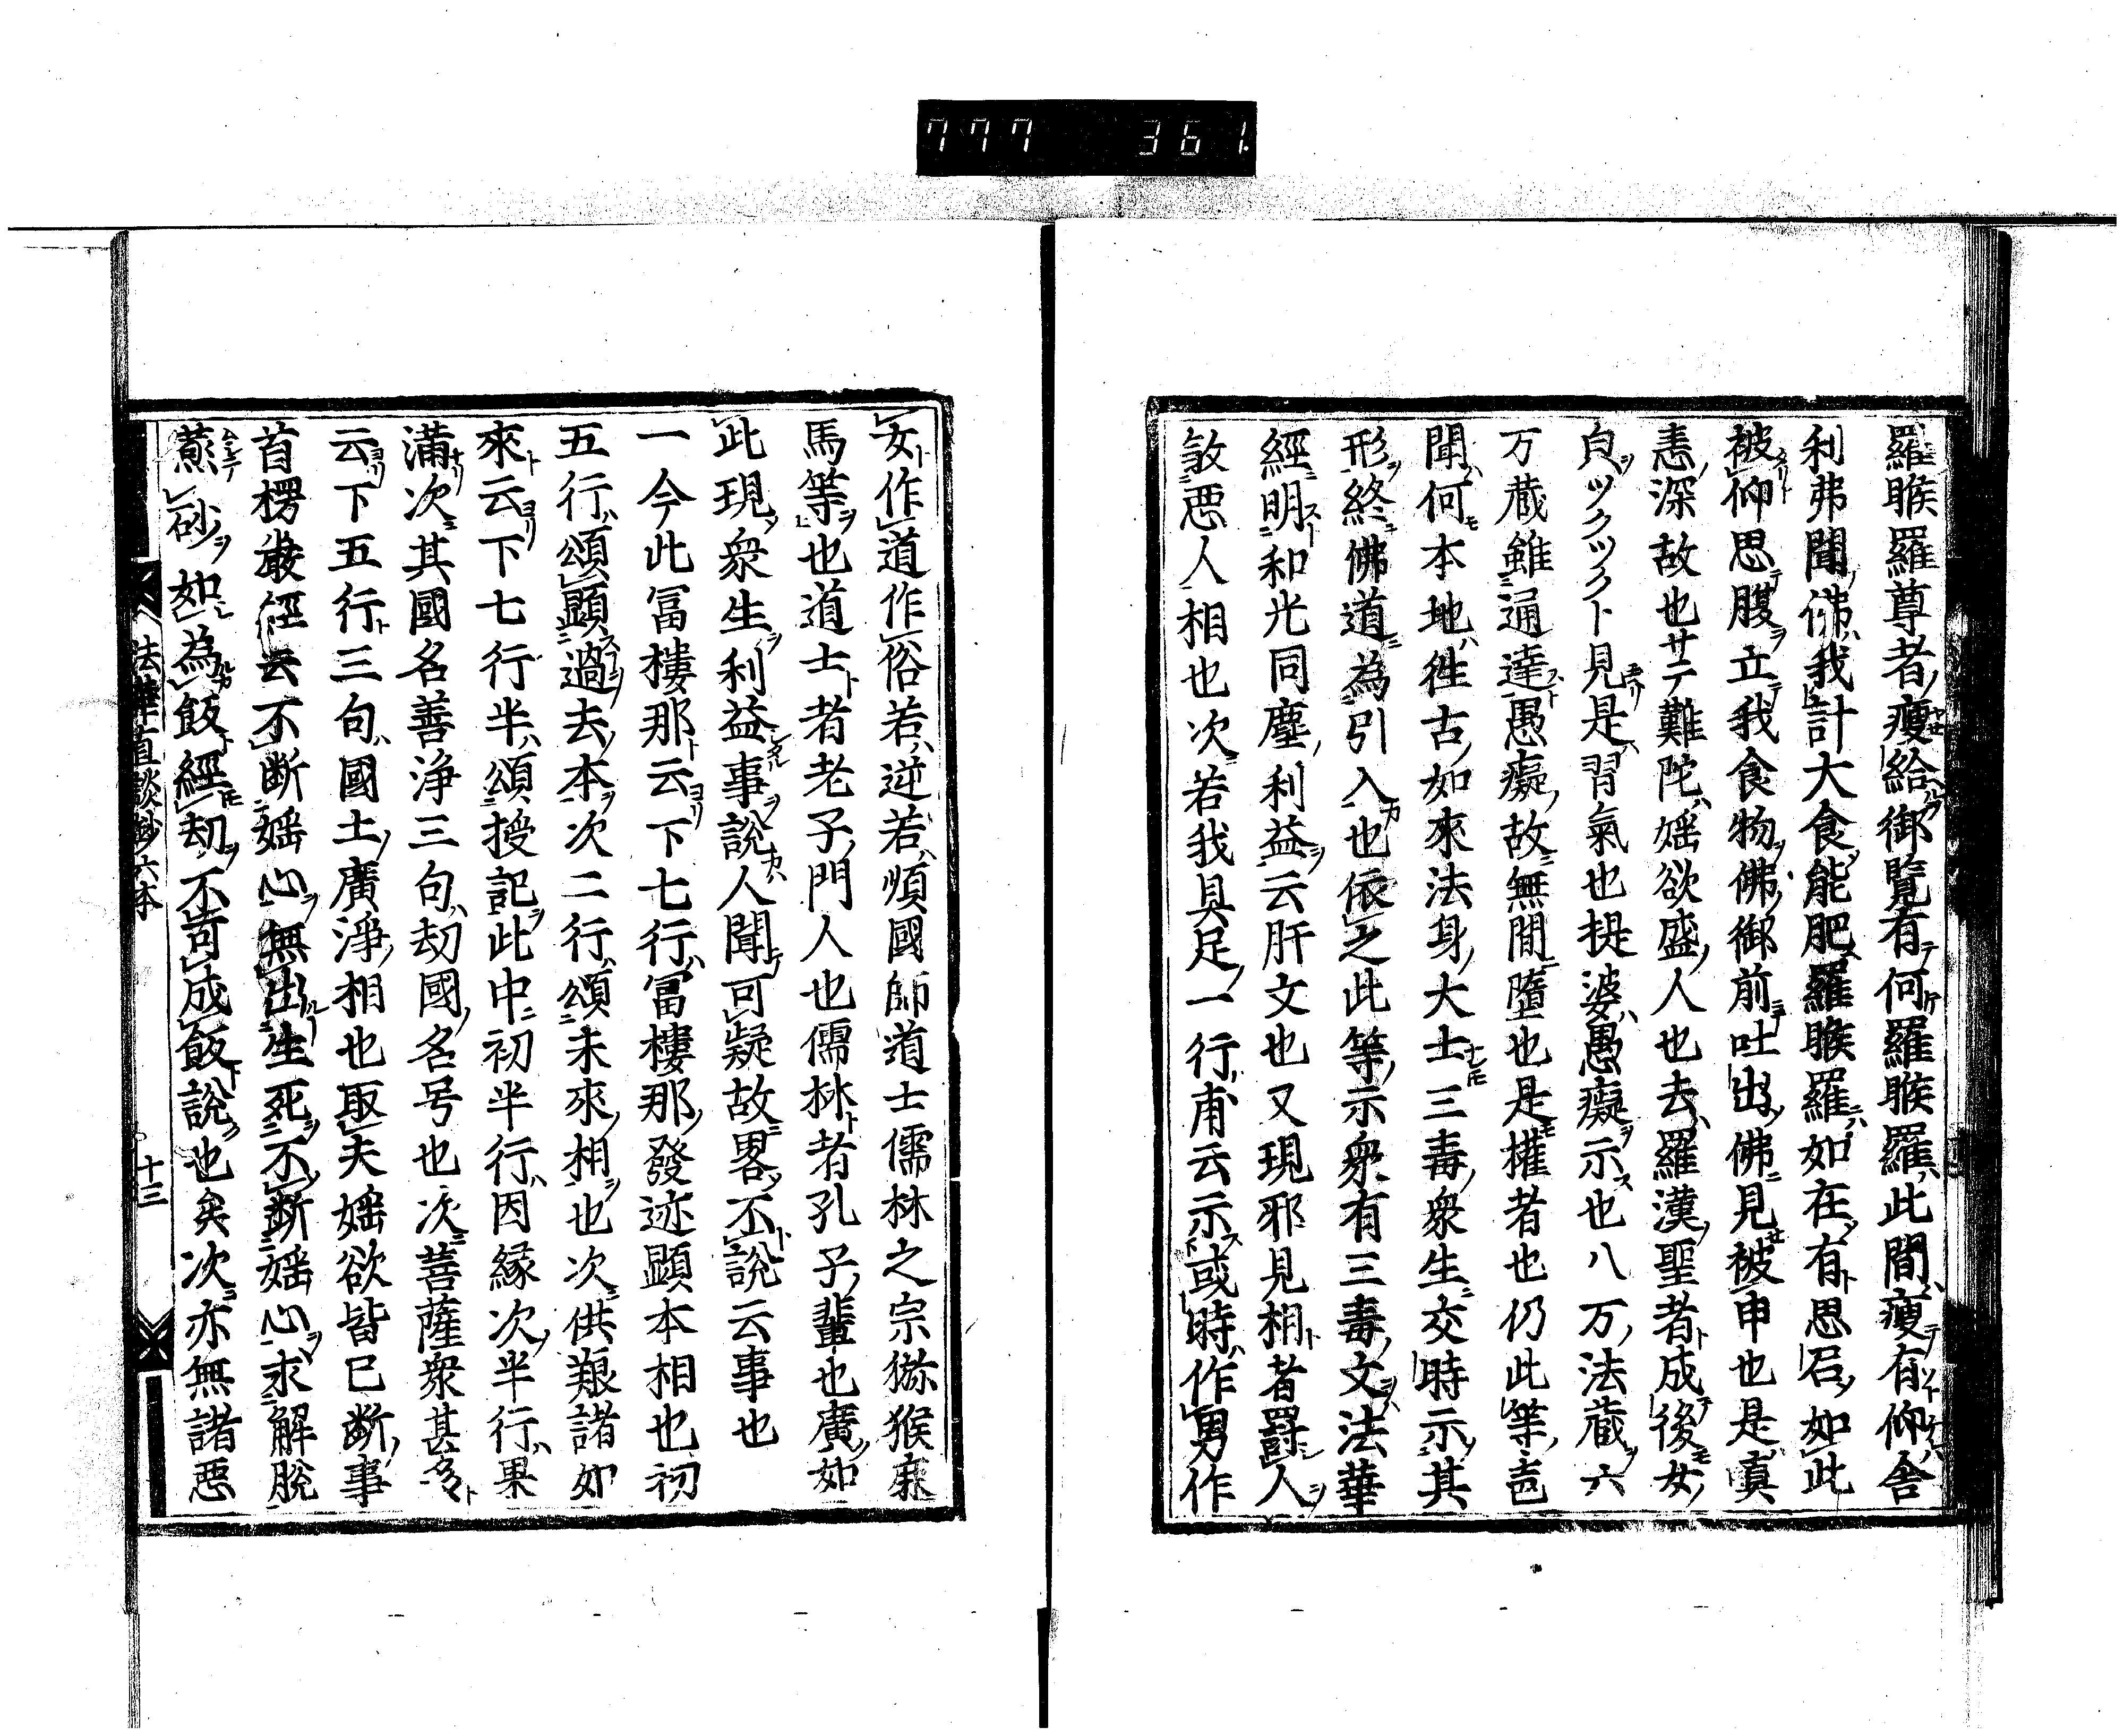 777 361.
羅睺羅尊者瘦給御覧有何羅睺羅此間瘦有仰舎
利弗聞佛我計大食能肥羅睺羅如在有思召如此
被仰思腹立我食物佛御前吐出佛見被申也是真
恚深故也サテ難陀婬欲盛人也去羅漢聖者成後女
白ツクツクト見是習氣也提婆愚癡示也八万法蔵六
万蔵雖通達愚癡故無間墮也是権者也仍此等壱
聞何本地徃古如來法身大士三毒衆生交時示其
形終佛道為引入也依之此等示衆有三毒文法華
經明和光同塵利益云肝文也又現邪見相者罸人
敎悪人相也次若我具足一行甫云示或時作男作
女作道作俗若逆若順國師道士儒林之宗猕猴麻
馬等也道士者老子門人也儒林者孔子輩也廣如
此現衆生利益事説人聞可疑故畧不説云事也
一今此冨樓那云下七行冨樓那發迹顕本相也初
五行頌顕過去本次二行頌未來相也次供艱諸如
來云下七行半頌授記此中初半行因縁次半行果
満次其國名善淨三句劫國名号也次菩薩衆甚多
云下五行三句國土廣淨相也取夫婬欲皆已断事
首楞嚴經云不断婬心無出生死不断婬心求解脱
蒸砂如為飯經劫不可成飯説也矣次亦無諸悪
法華直談抄六本 十三